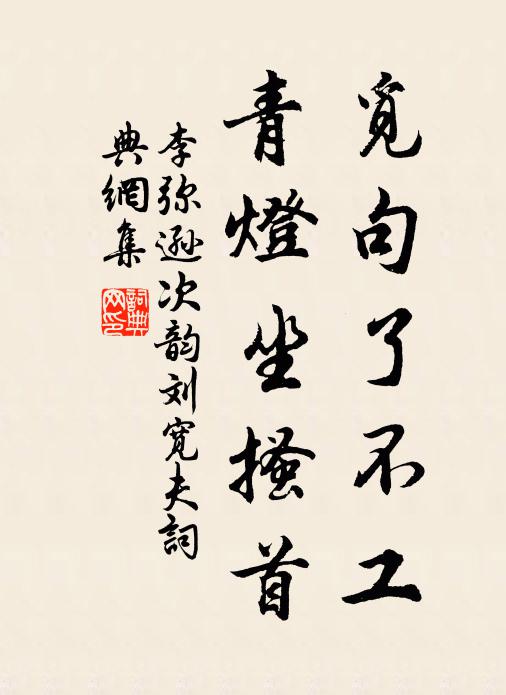 覓句了不工
青燈坐搔首
李弥遜次韵刘寬夫詞
典網集
詞典
网印